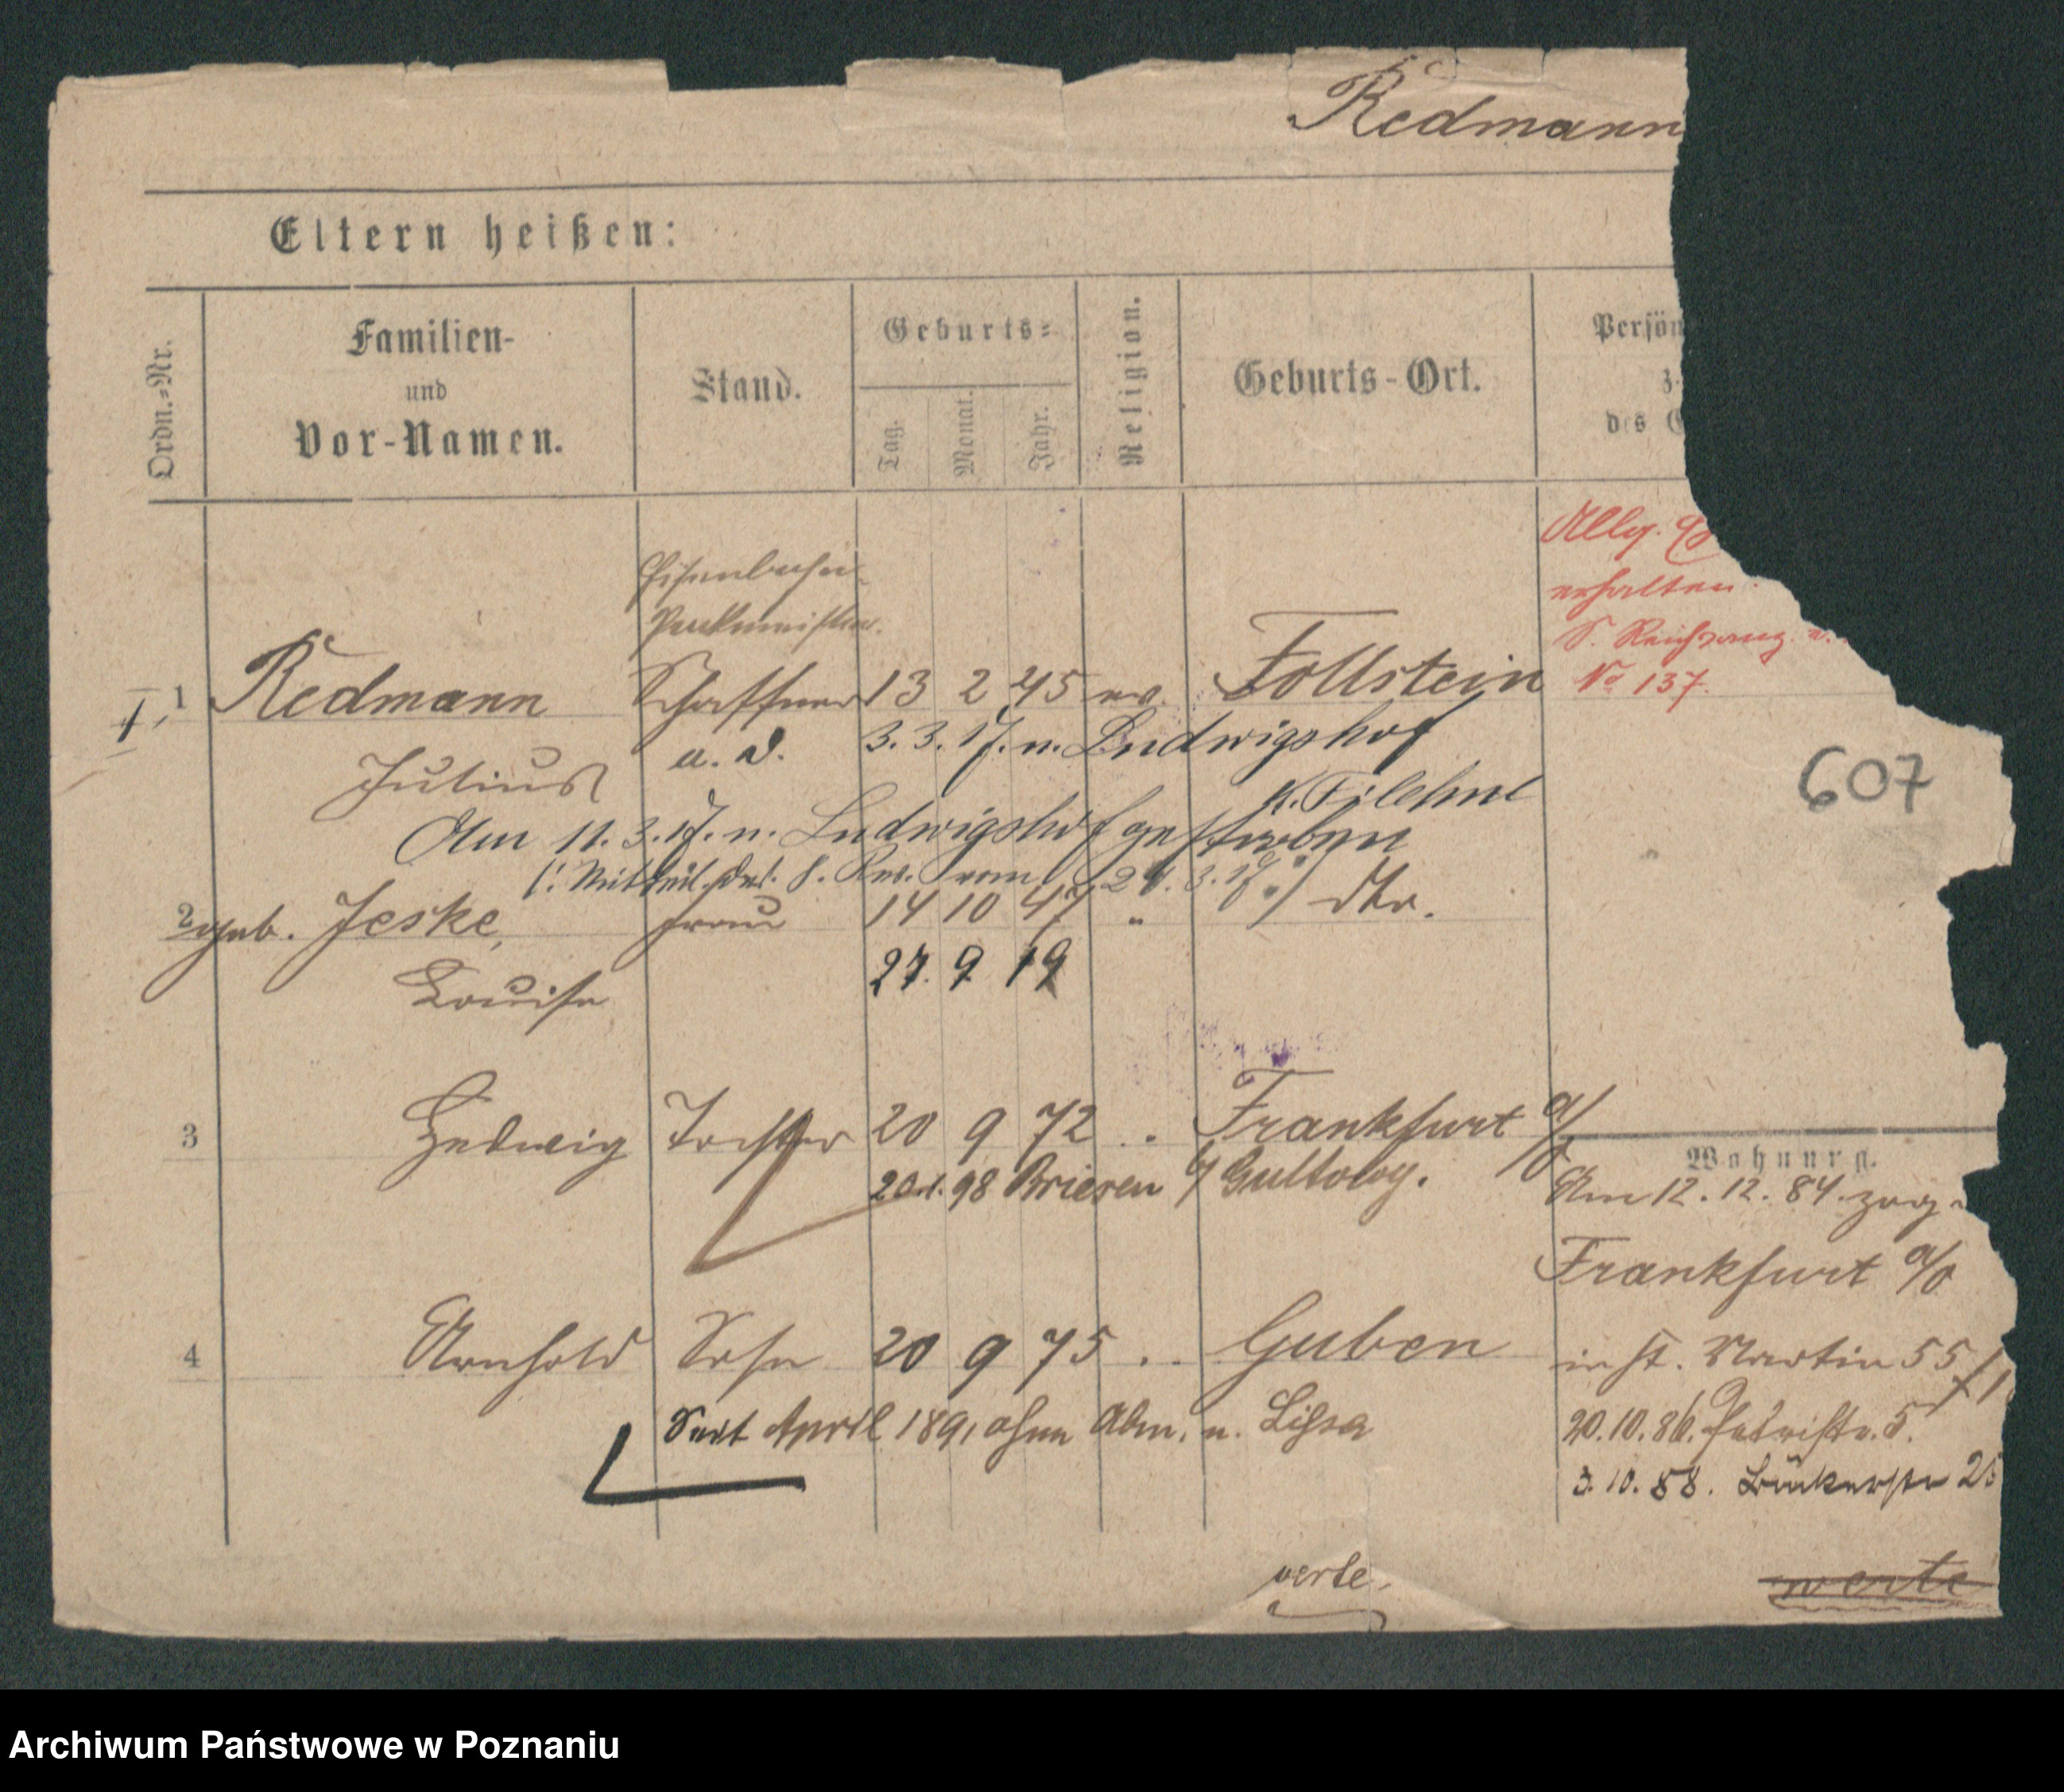 Redmann
Eltern heißen:
Ordn.-Nr.
Familien-
und
Vor-Namen.
Stand.
Geburts-
Tag.
Monat.
Jahr.
Religion.
Geburts-Ort.
Persön
z.
des
Allg.
erhalten.
S. Reichsanz.
No 137.
Eisenbahn-
Packmeister.
I, 1 Redmann Schaffner 13 2 45 ev. Follstein
a. D. 3. 3. 17. n. Ludwigshof
Julius K. Filehne
Am 11. 3. 17. n. Ludwigshof gestorben
(: Mitteil. d. 8. Rev. vom 24. 3. 17 :)
2 geb. Jeske, Frau 14 10 47 " dto.
27. 9. 19
Louise
607
3 Hedwig Tochter 20 9 72 " Frankfurt a/O
20. 1. 98 Briesen
Wohnung.
Am 12. 12. 84. zog.
Frankfurt a/O
4 Arnhold Sohn 20 9 75 " Guben
in St. Martin 55
Seit April 1891 ohne Abm. n. Lissa
20. 10. 86. Petristr. 5.
3. 10. 88. Bäckerstr 25
verte.
verte